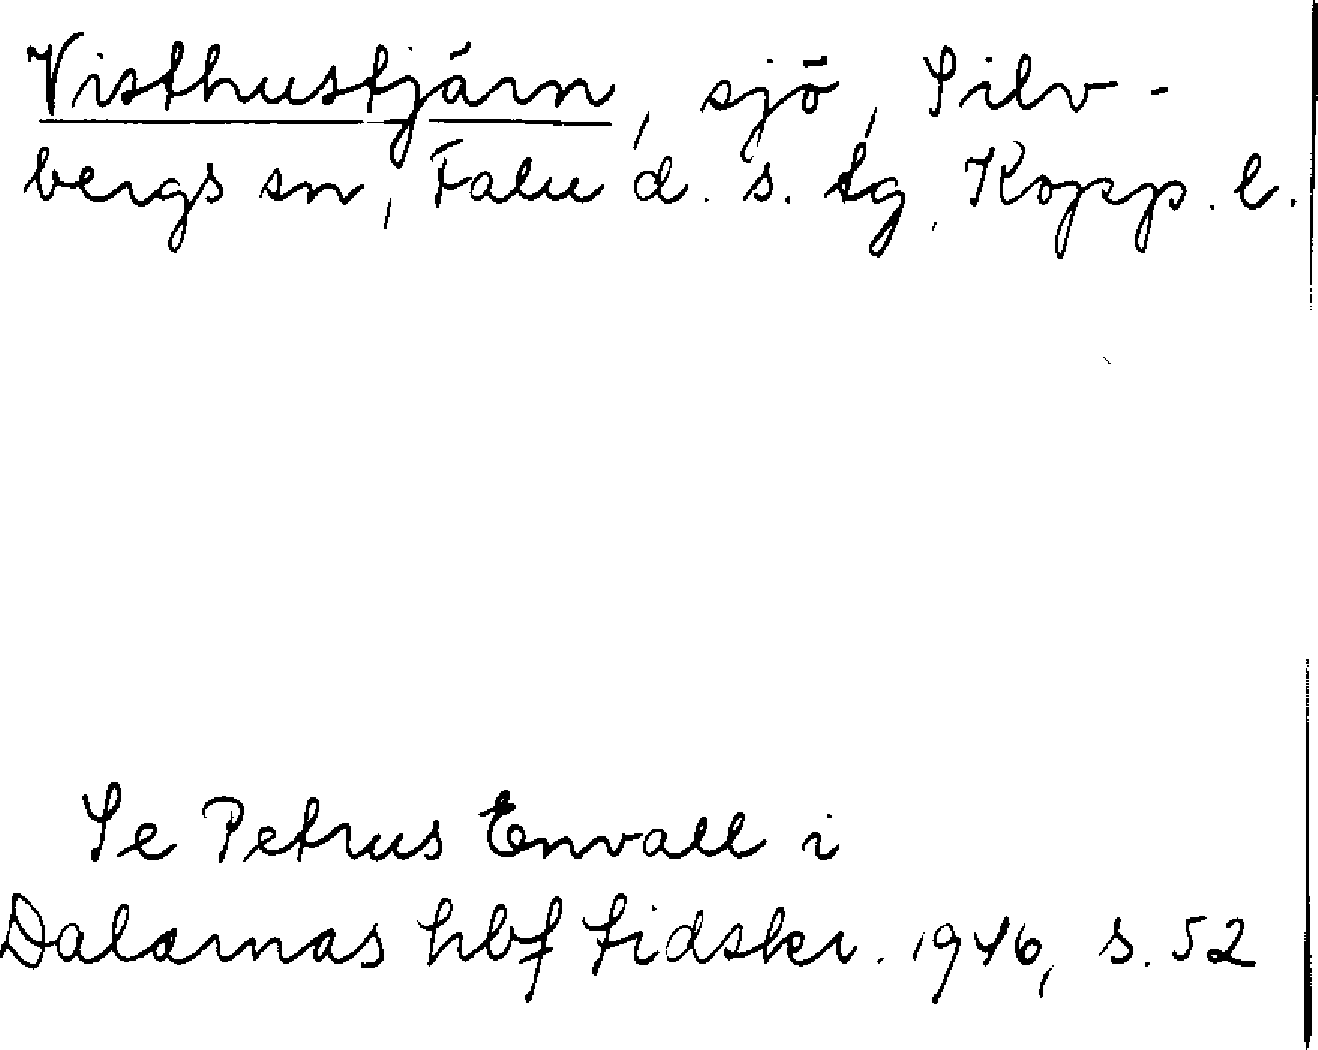 Visthustjärn, sjö, Silv-
bergs sn, Falu d. s. tg, Kopp. l.
Se Petrus Envall i
Dalarnas hbf tidskr. 1946, s. 52